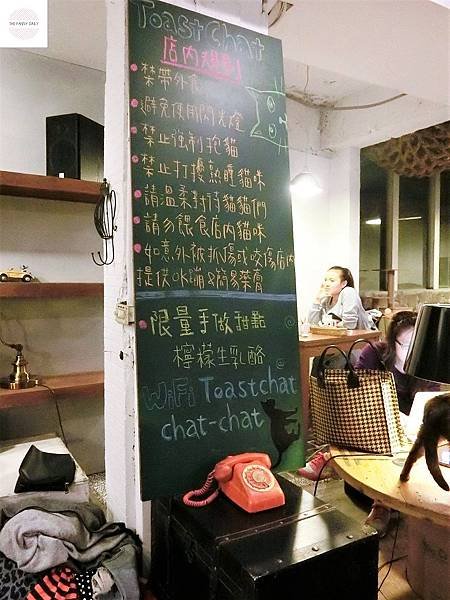 THE FANSY DAILY
Toast Chat
店內規則
禁帶外食
避免使用閃光燈
禁止強制抱貓
禁止打擾熟睡貓咪
請溫柔對待貓貓們
請勿餵食店內貓咪
如意外被抓傷或咬傷店內
提供OK蹦&簡易藥膏
限量手做甜點
檸檬生乳酪
WiFi Toastchat
chat-chat